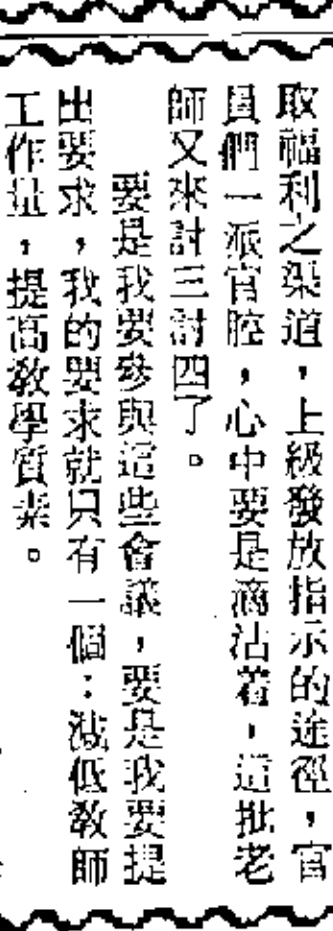 取福利之渠道，上級發放指示的途徑，官
員們一派官腔，心中要是滴沽着，這批老
師又來討三討四了。
要是我要參與這些會議，要是我要提
出要求，我的要求就只有一個：減低教師
工作量，提高教學質素。